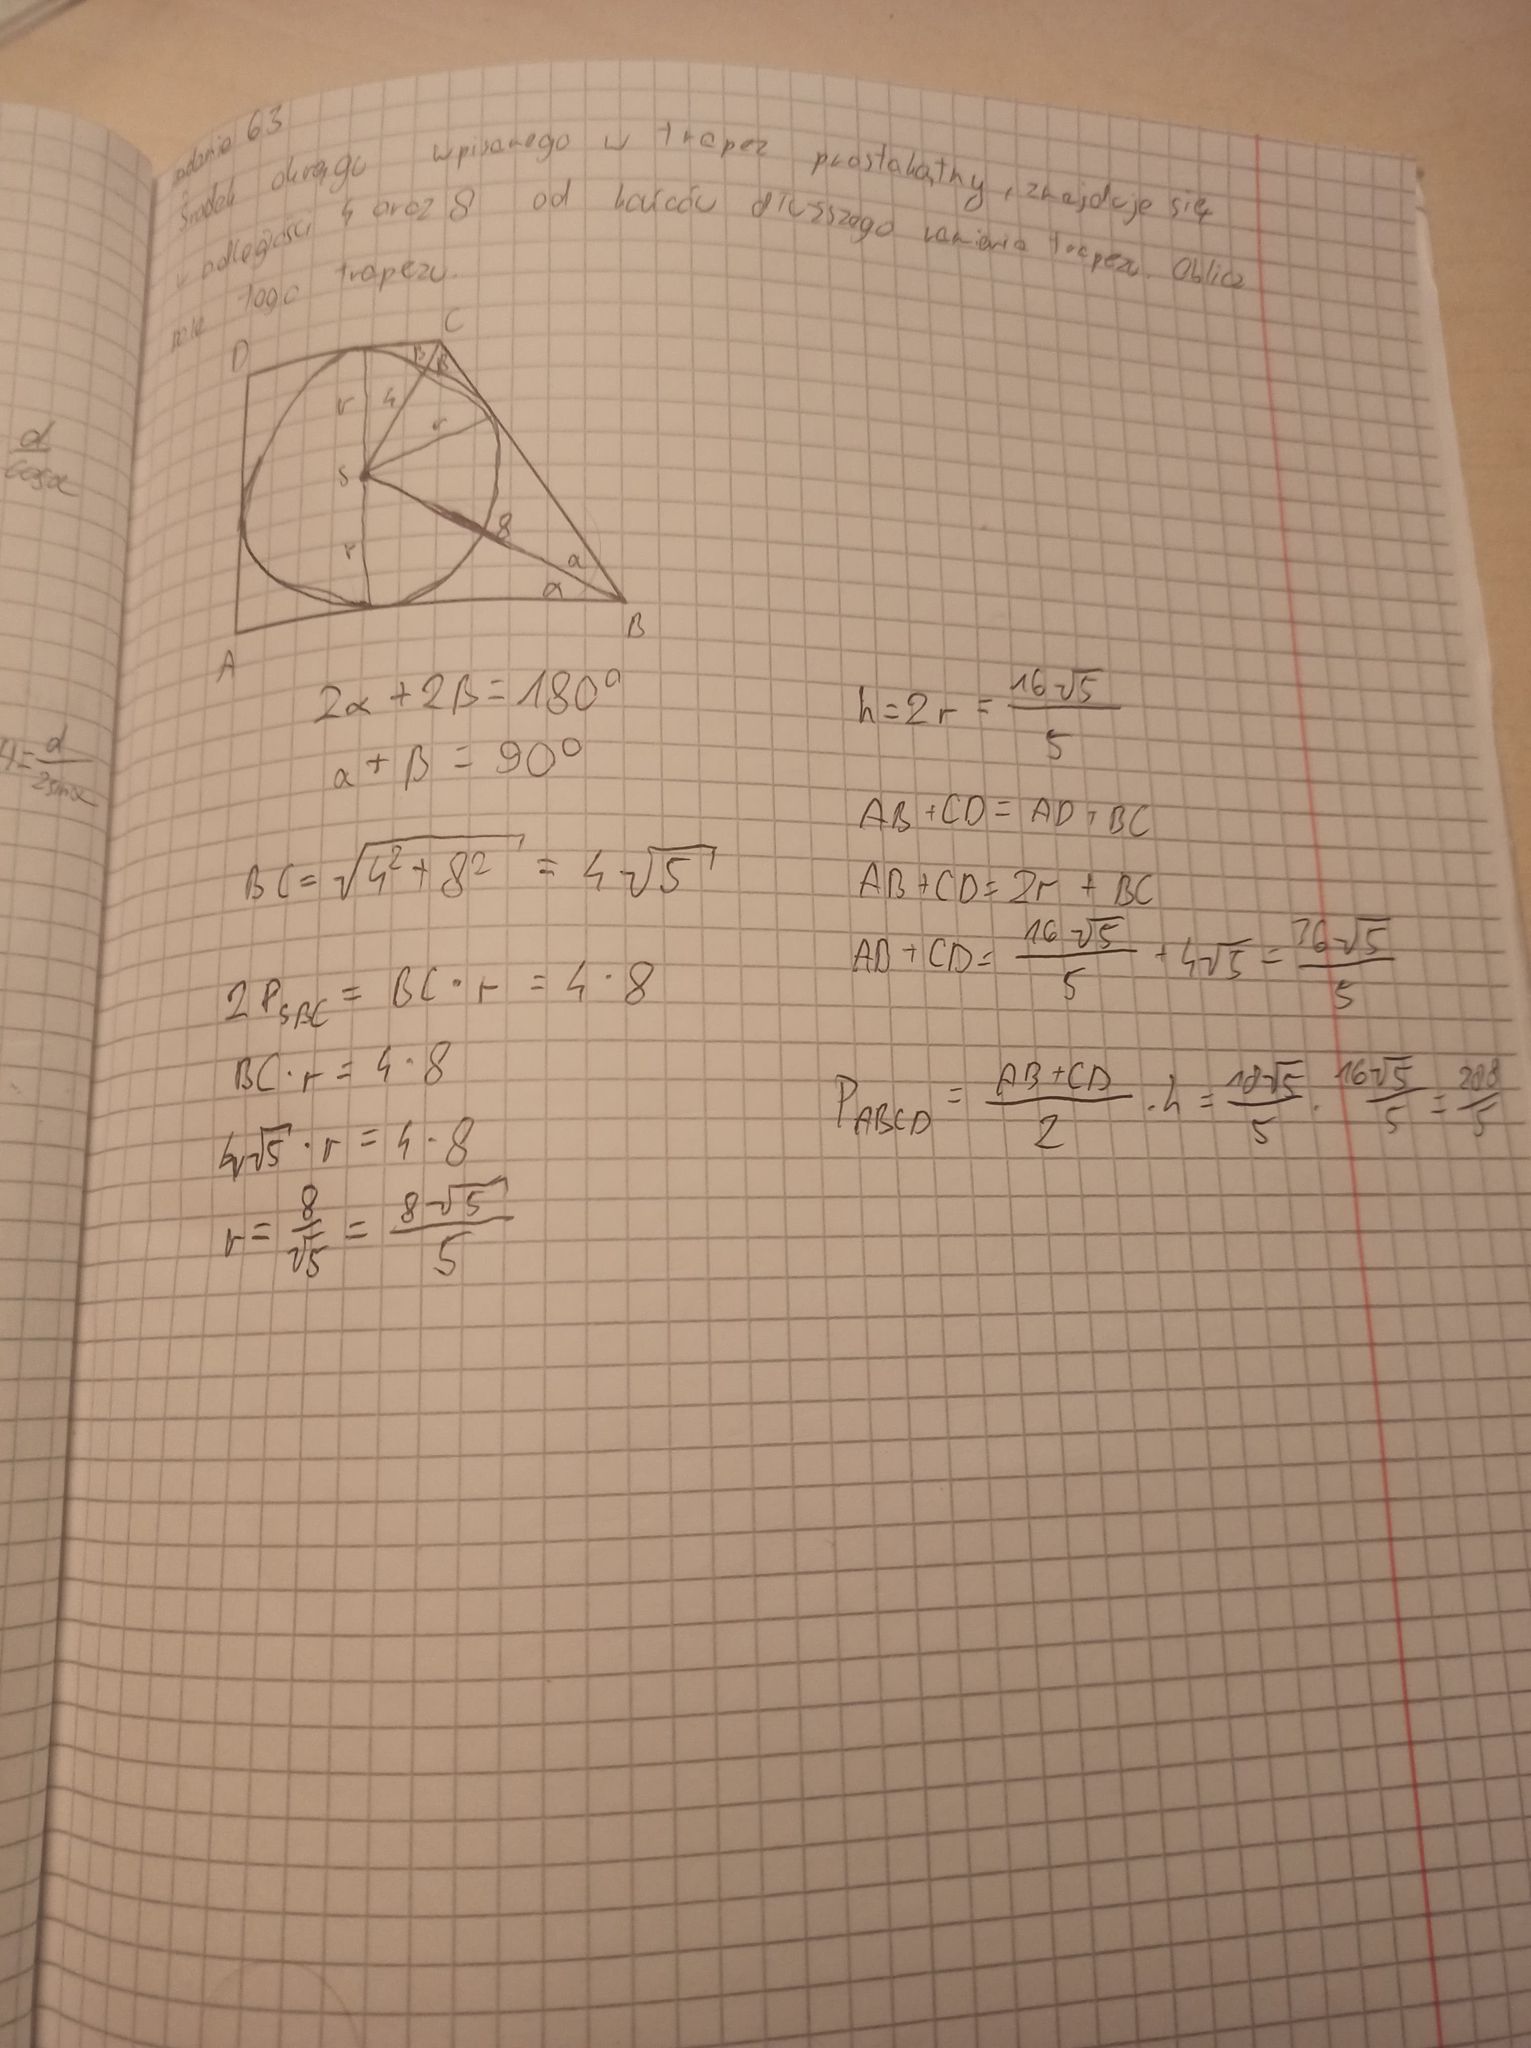 zadanie 63
Środek okręgu wpisanego w trapez prostokątny, znajduje się
w odległości 4 oraz 8 od końców dłuższego ramienia trapezu. Oblicz
pole tego trapezu.
D
C
β
β
r
4
r
S
8
r
α
α
A
B
d/cosα
d/2sinα
2α + 2β = 180°
α + β = 90°
BC = √(4² + 8²) = 4√5
2P_SBC = BC · r = 4 · 8
BC · r = 4 · 8
4√5 · r = 4 · 8
r = 8/√5 = 8√5/5
h = 2r = 16√5/5
AB + CD = AD + BC
AB + CD = 2r + BC
AB + CD = 16√5/5 + 4√5 = 36√5/5
P_ABCD = (AB + CD)/2 · h = 18√5/5 · 16√5/5 = 288/5